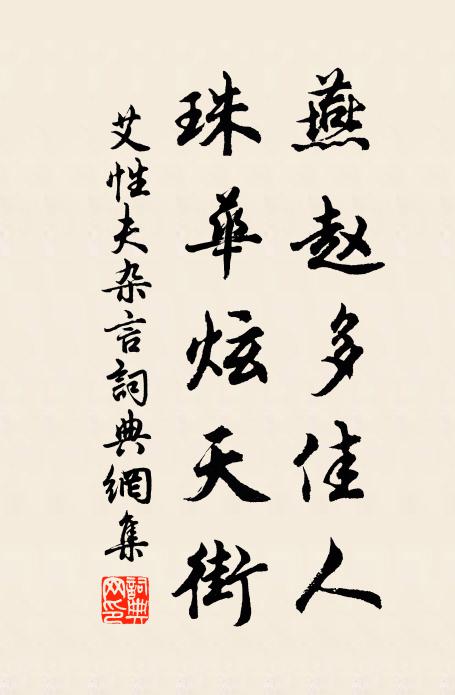 燕赵多佳人
珠華炫天街
艾性夫杂言詞典網集
詞典网印